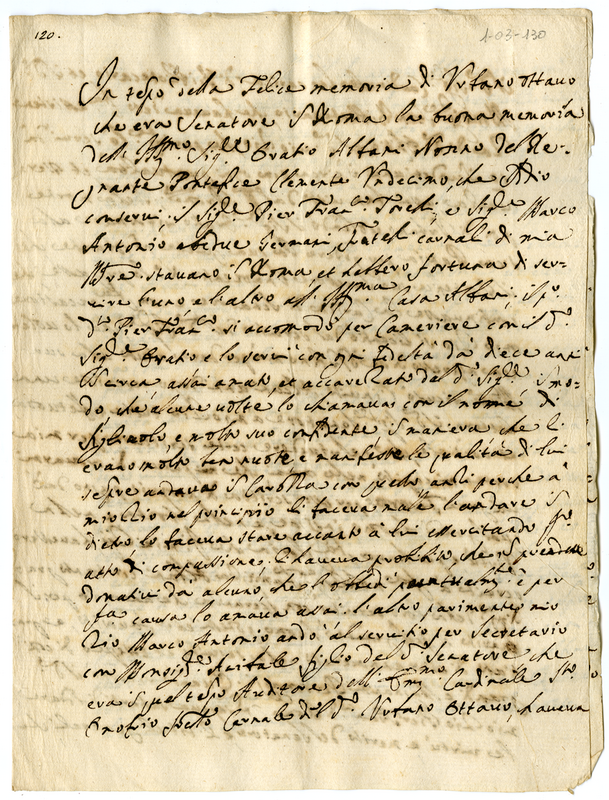 120.
1-03-130
In tepo della Felice memoria di Vrbano ottauo
che era Senatore i Roma la buona memoria
dell' Illmo. Sigre. Oratio Albani Nonno del Re-
gnante Pontefice Clemente Vndecimo, che Iddio
conserui, il sigre. Pier Franco. e sigre. Marco
Antonio abedue Germani, Fratelli carnali di mia
Mre. stauano i Roma, et hebbero fortuna di ser-
uire l'uno, e l'altro all' Illma. Casa Albani, il po.
do. Pier Franco. si accomodò per Cameriere con il do.
Sigre. Oratio e lo serui con ogni Fedeltà da diece anni
circa assai amato, et accarezzato dal do. Sigre. i mo-
do che alcune uolte lo chiamaua con il nome di
figliuolo, e molto suo confidente, i maniera che li
erano molto ben note, e manifeste le qualità di lui
sepre andaua i Carozza con perche à
mio Zio nel principio li faceua male l'andare i
dietro lo faceua stare accanto à lui essercitando
atto di compassione, l'haueua prohibito, che no prendesse
donatiui da alcuno, che l'obbedì puntualmte. è per
sta causa lo amaua assai. l'altro parimente mio
Zio Marco Antonio andò al seruitio per Secretario
con Monsigre. Anibale figlio del do. Senatore che
era i quel tepo Auditore dell' Emmo. Cardinale Sto.
Onofrio Carnale del do. Vrbano Ottauo, haueua